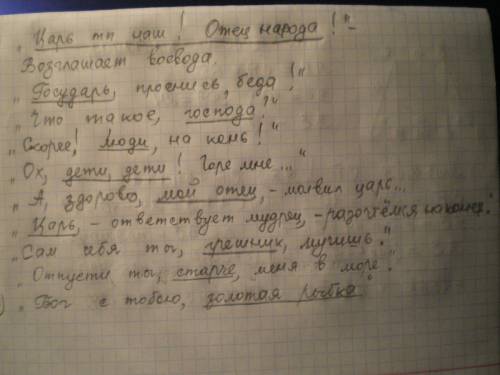 „Царь ты наш! Отец народа!“ –
Возглашает воевода.
„Государь, проснись, беда!“
„Что такое, господа?“
„Скорее! Люди, на конь!“
„Ох, дети, дети! Горе мне...“
„А, здорово, мой отец, – молвил царь...
„Царь, – ответствует мудрец, – разочтёмся наконец.“
„Сам себя ты, грешник, мучишь.“
„Отпусти ты, старче, меня в море.“
„Бог с тобою, золотая рыбка“